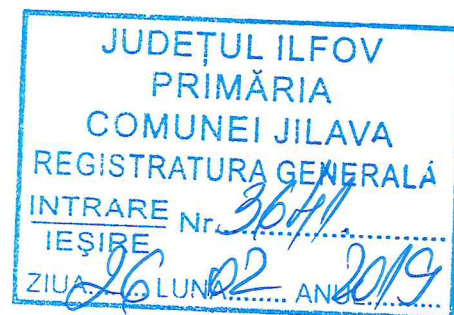 JUDEȚUL ILFOV
PRIMĂRIA
COMUNEI JILAVA
REGISTRATURA GENERALĂ
INTRARE
IEȘIRE Nr. 3641
ZIUA 26 LUNA 02 ANUL 2019